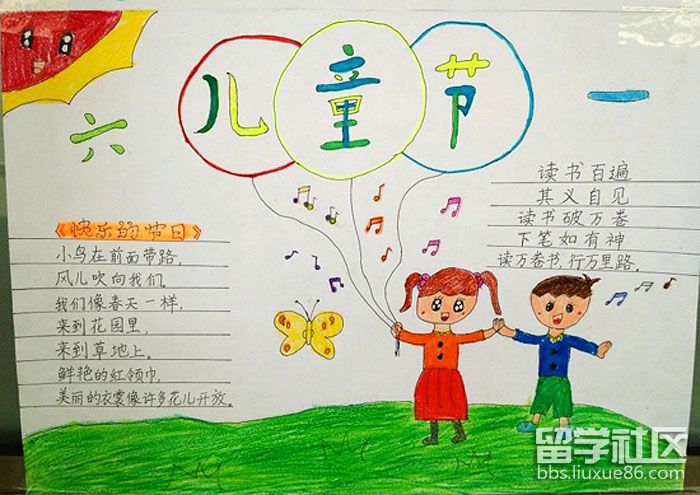 儿童节
六
一
《快乐的节日》
小鸟在前面带路,
风儿吹向我们。
我们像春天一样,
来到花园里,
来到草地上。
鲜艳的红领巾,
美丽的衣裳像许多花儿开放。
读书百遍
其义自见
读书破万卷
下笔如有神
读万卷书,行万里路。
留学社区
bbs.liuxue86.com